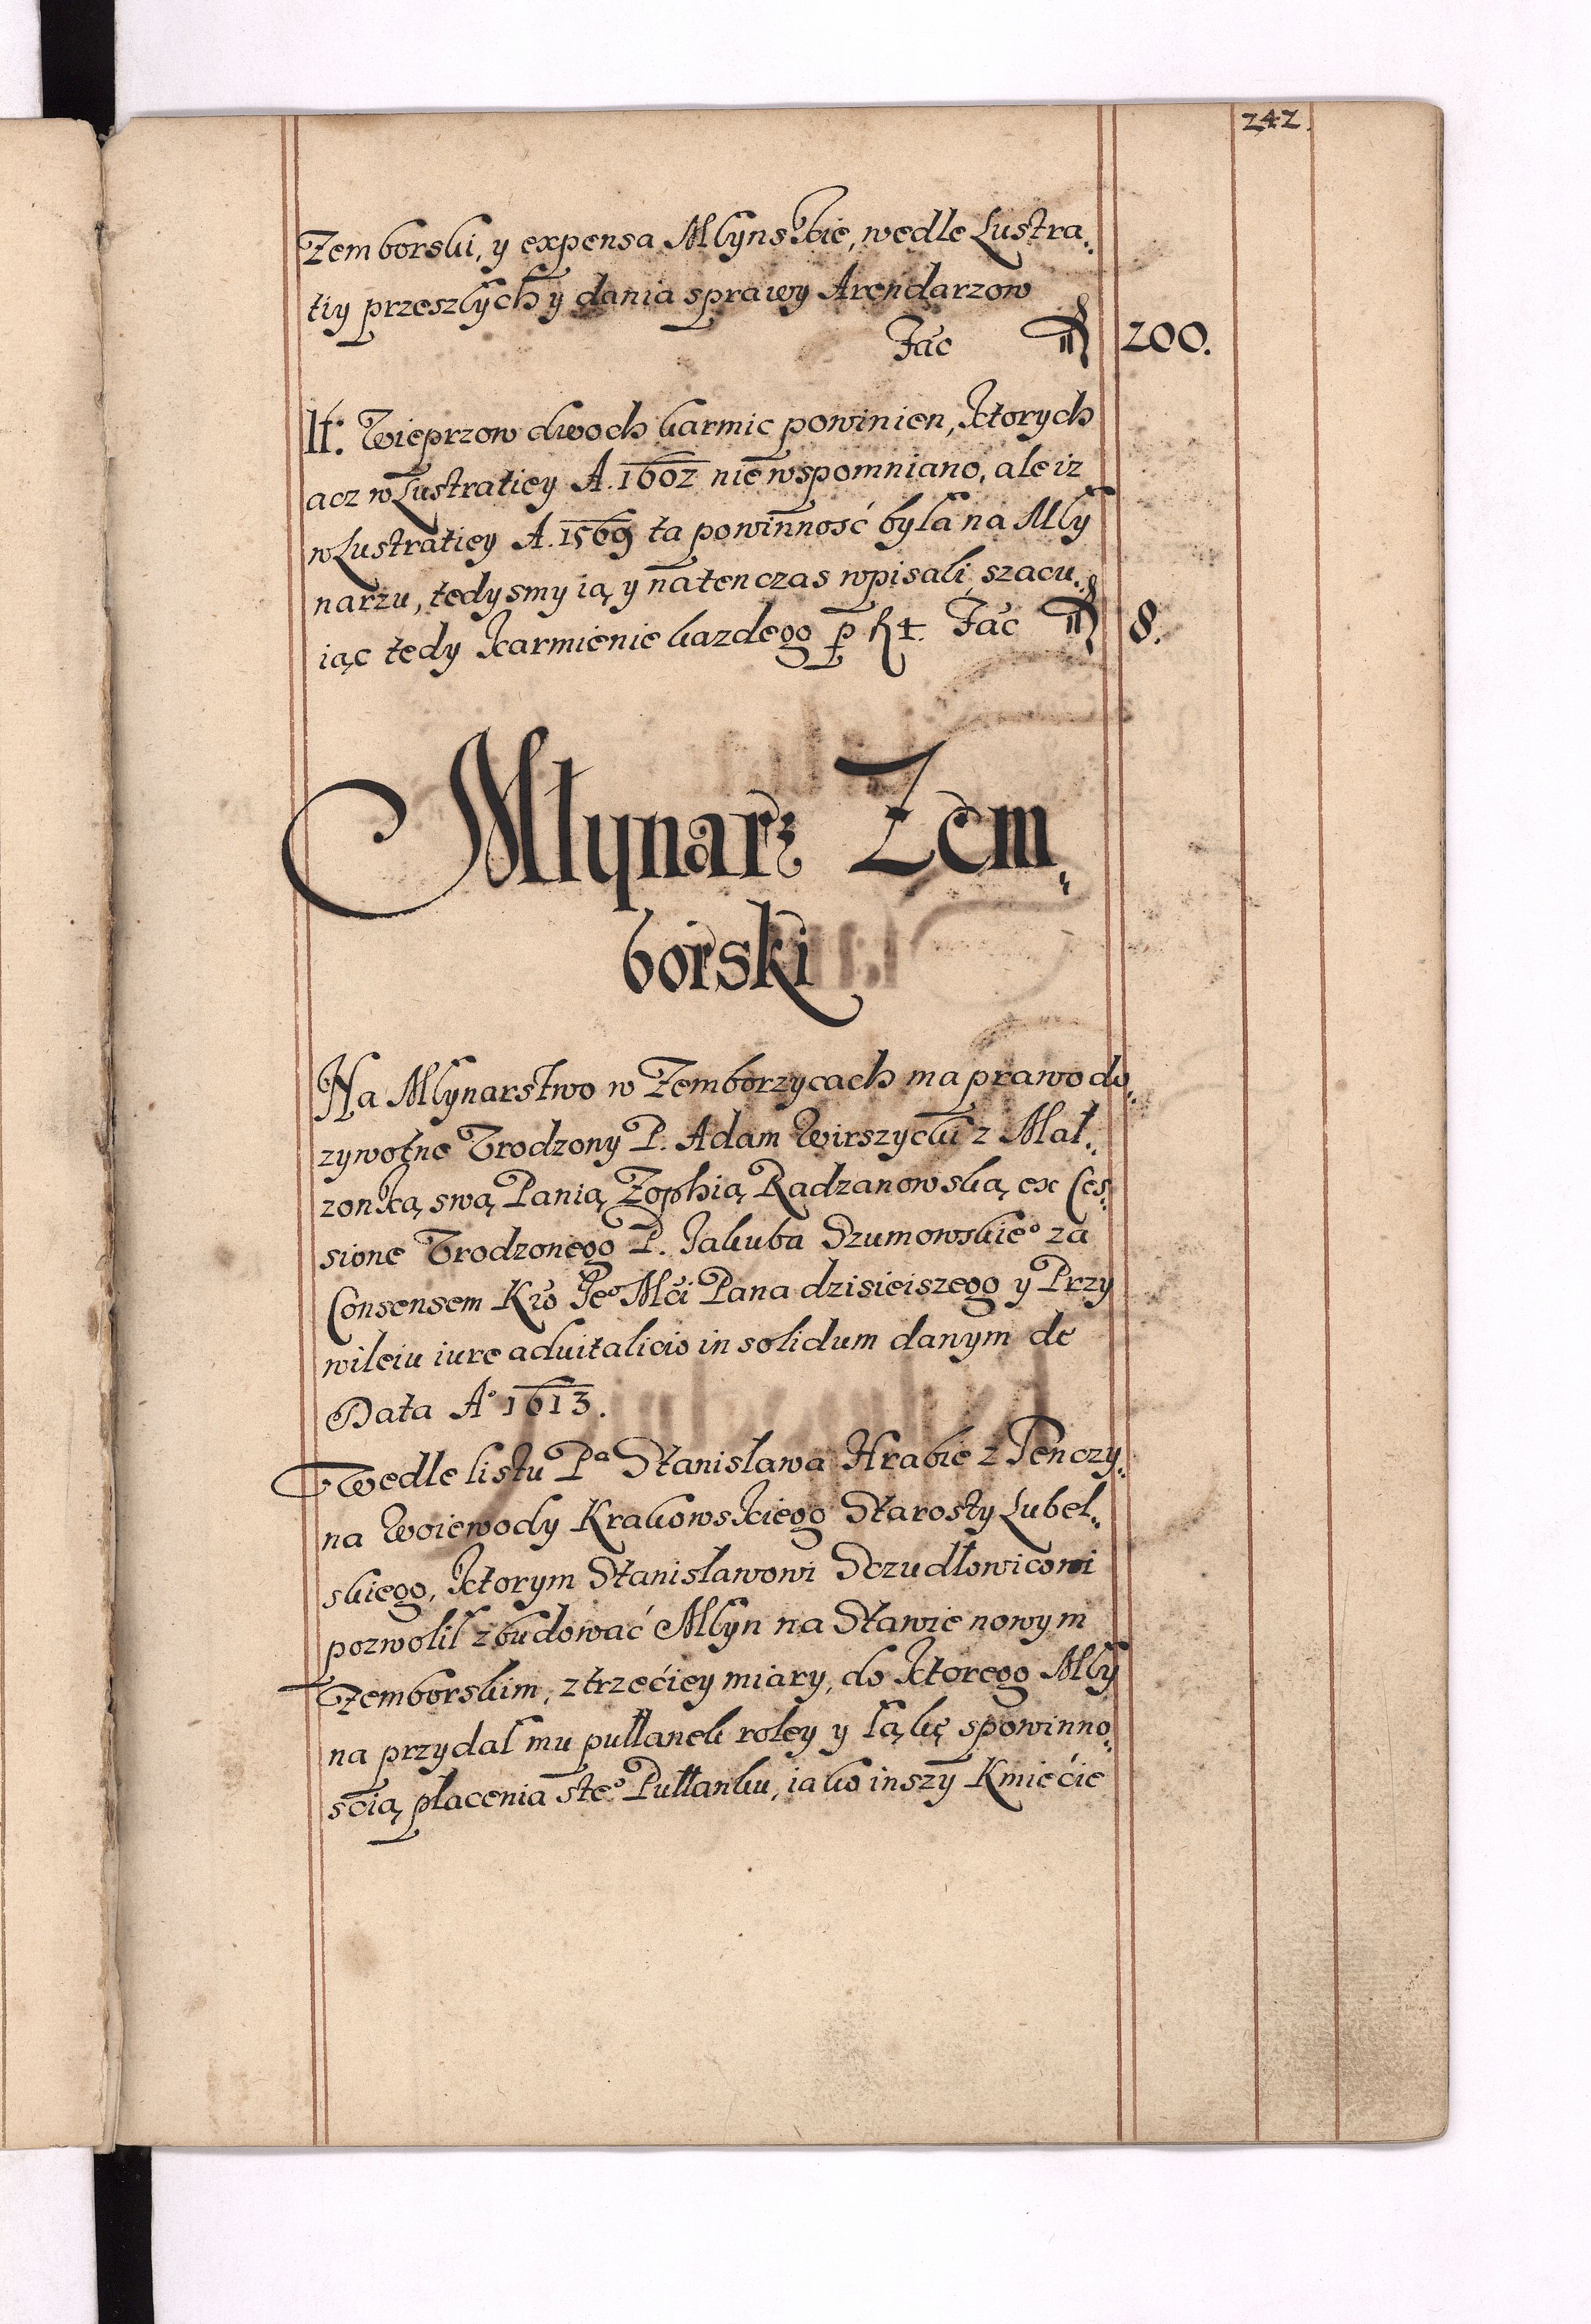 242.
Zemborski, y expensa Młynskie, wedle Lustra,
tiy przeszłych y dania sprawy Arendarzow
Fac 200.
It: Wieprzow dwoch karmic powinien, ktorych
acz w Lustratiey A. 1602 nie wspomniano, ale iz
w Lustratiey A. 1569 ta powinność była na Mły
narzu, tedysmy ią y naten czas wpisali, szacu,
iąc tedy karmienie kazdego p f 4. Fac 8.
Młynarz Zem,
borski
Na Młynarstwo w Zemborzycach ma prawo do,
zywotne Vrodzony P. Adam Wirszycki z Mał,
zonką swą Panią Zophią Radzanowską ex Ces,
sione Vrodzonego P. Jakuba Szumowskieº za
Consensem Kró Jeº Mći Pana dzisieiszego y Przy
wileiu iure aduitalicio in solidum danym de
Data Aº 1613.
Wedle listu Pª Stanisława Hrabie z Tenczy,
na Woiewody Krakowskiego Starosty Lubel,
skiego, ktorym Stanisławowi Sczudłowicowi
pozwolił zbudować Młyn na Stawie nowym
Zemborskim, z trzećiey miary, do ktorego Mły
na przydał mu pułłanek roley y łąkę spowinno,
scią płacenia steº Pułłanku, iako inszy Kmiećie